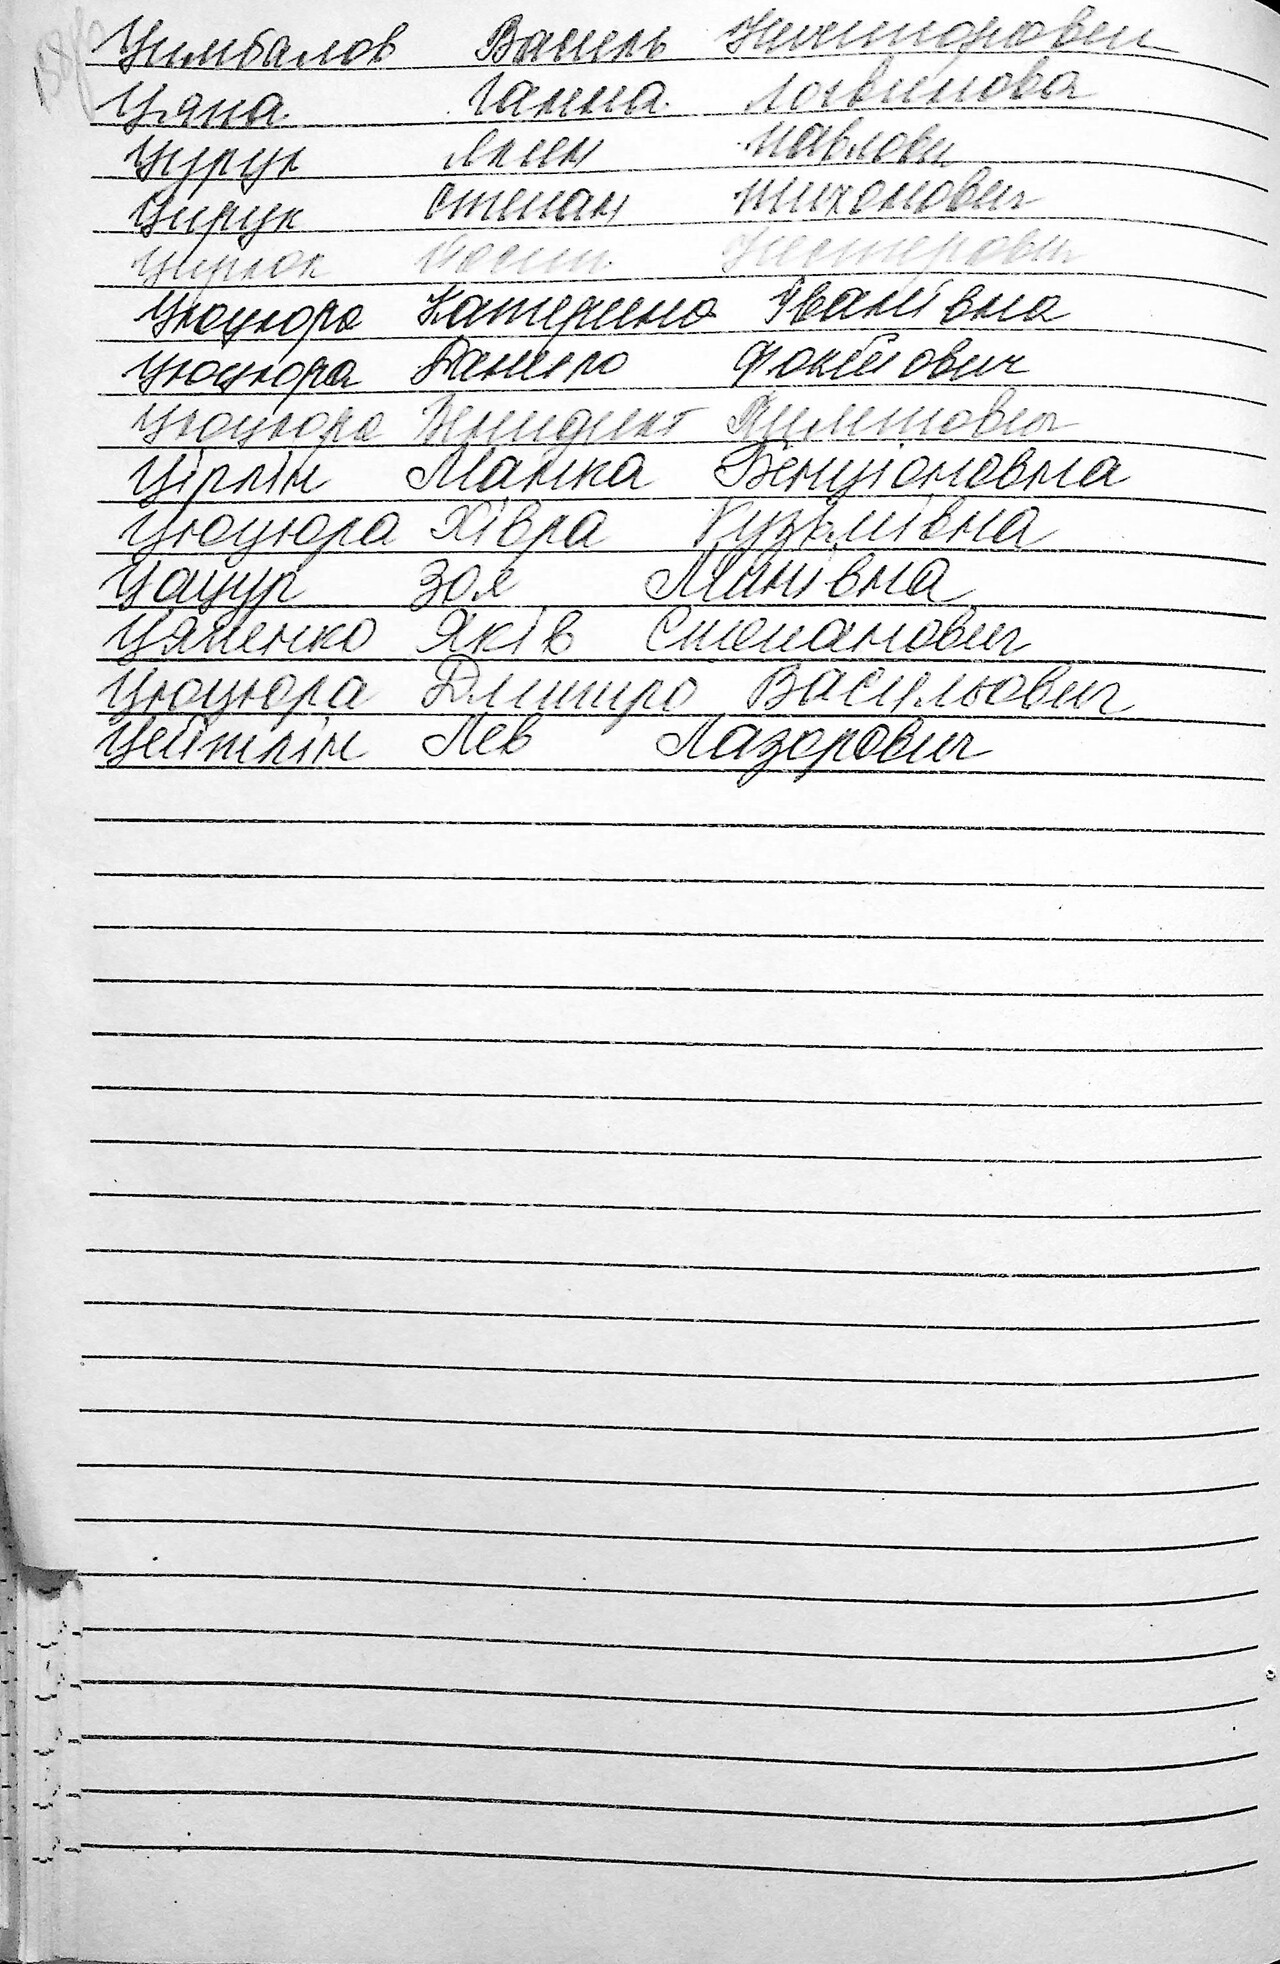 Цимбалов Василь Никифорович
Цяпа Ганна Логвинова
Цурук Якии Павлови
Цирук Степан Тихонович
Цирюк Йосип Нестерович
Цюцюра Катерина Іванівна
Цюцюра Данило Фокійович
Цюцюра Венидикт Пилипович
Цірлін Манка Бенціоновна
Цюцюра Хівра Кузьмівна
Цацур Зоя Минівна
Цяпенко Яків Степанович
Цюцюра Дмитро Васильович
Цейтлін Лев Лазарович